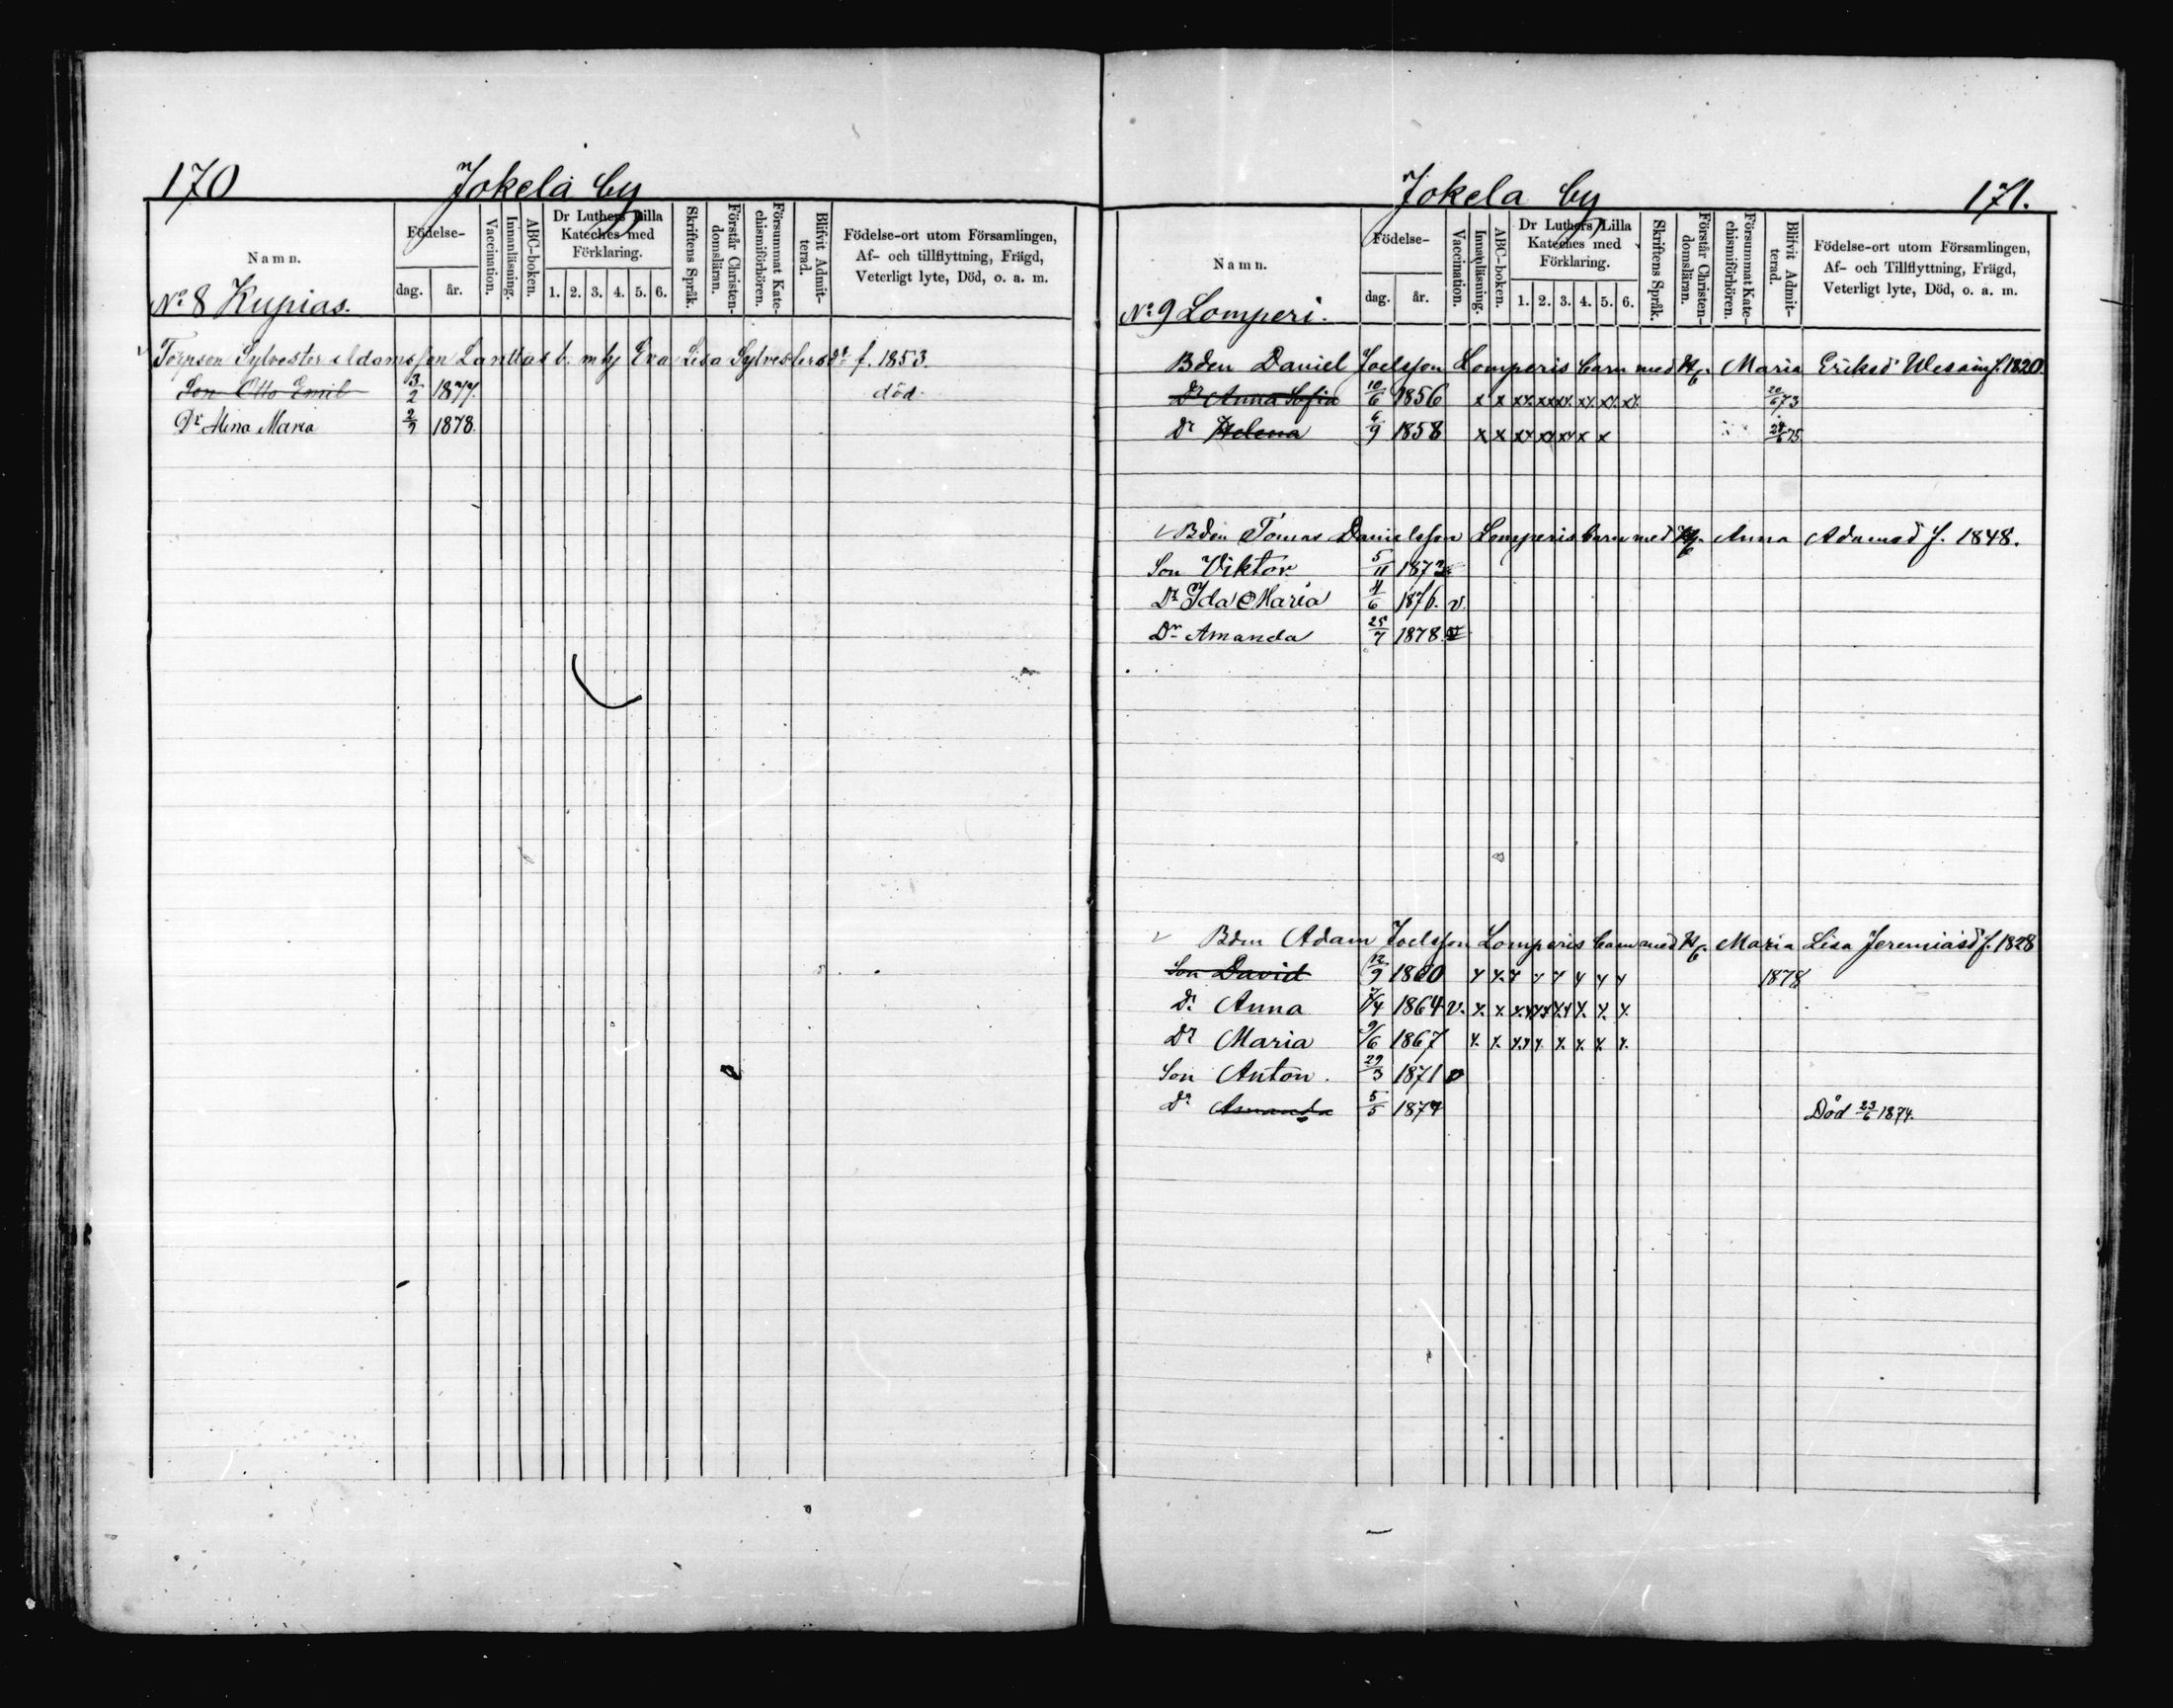 170 Jokela by
Namn. Födelse- dag. år. Vaccination. Innanläsning. ABC-boken. Dr Luthers Lilla Kateches med Förklaring. 1. 2. 3. 4. 5. 6. Skriftens Språk. Förstår Christen-domsläran. Försummat Kate-chismiförhören. Blifvit Admit-terad. Födelse-ort utom Församlingen, Af- och tillflyttning, Frägd, Veterligt lyte, Död, o. a. m.
No 8 Kupias.
Sylvester Adamsson Lanttas b. m hj Eva Lisa Sylvestersdr f. 1853.
Son Otto Emil 3/2 1877. död
Dr Mina Maria 1878.
Jokela by 171.
Namn. Födelse- dag. år. Vaccination. Innanläsning. ABC-boken. Dr Luthers Lilla Kateches med Förklaring. 1. 2. 3. 4. 5. 6. Skriftens Språk. Förstår Christen-domsläran. Försummat Kate-chismiförhören. Blifvit Admit-terad. Födelse-ort utom Församlingen, Af- och Tillflyttning, Frägd, Veterligt lyte, Död, o. a. m.
No 9 Lomperi.
Bden Daniel Joelsson Lomperis barn med H. Maria Eriksd f. 1820
Dr Anna Sofia 10/6 1856 x x xx xxx xx xx xx 20/6 73
Dr Helena 6/9 1858 x x xx xx xx x x 75
v Bden Tomas Danielsson Lomperis barn med Hg. Anna Adamsd f. 1848.
Son Viktor 5/11 1873
Dr Ida Maria 4/6 1876. v.
Dr Amanda 25/7 1878. v
v Bden Adam Joelsson Lomperis barn med H. Maria Lisa Jeremiasd f. 1828
Son David 12/9 1860 x x x x x x x x 1878
Dr Anna 1864 v. x. x. x.x x.x x.x x. x. x.
Dr Maria 9/6 1867 x. x. x.x x. x. x. x x.
Son Anton. 29/3 1871 v
Dr Amanda 5/5 1874 Död 23/6 1874.